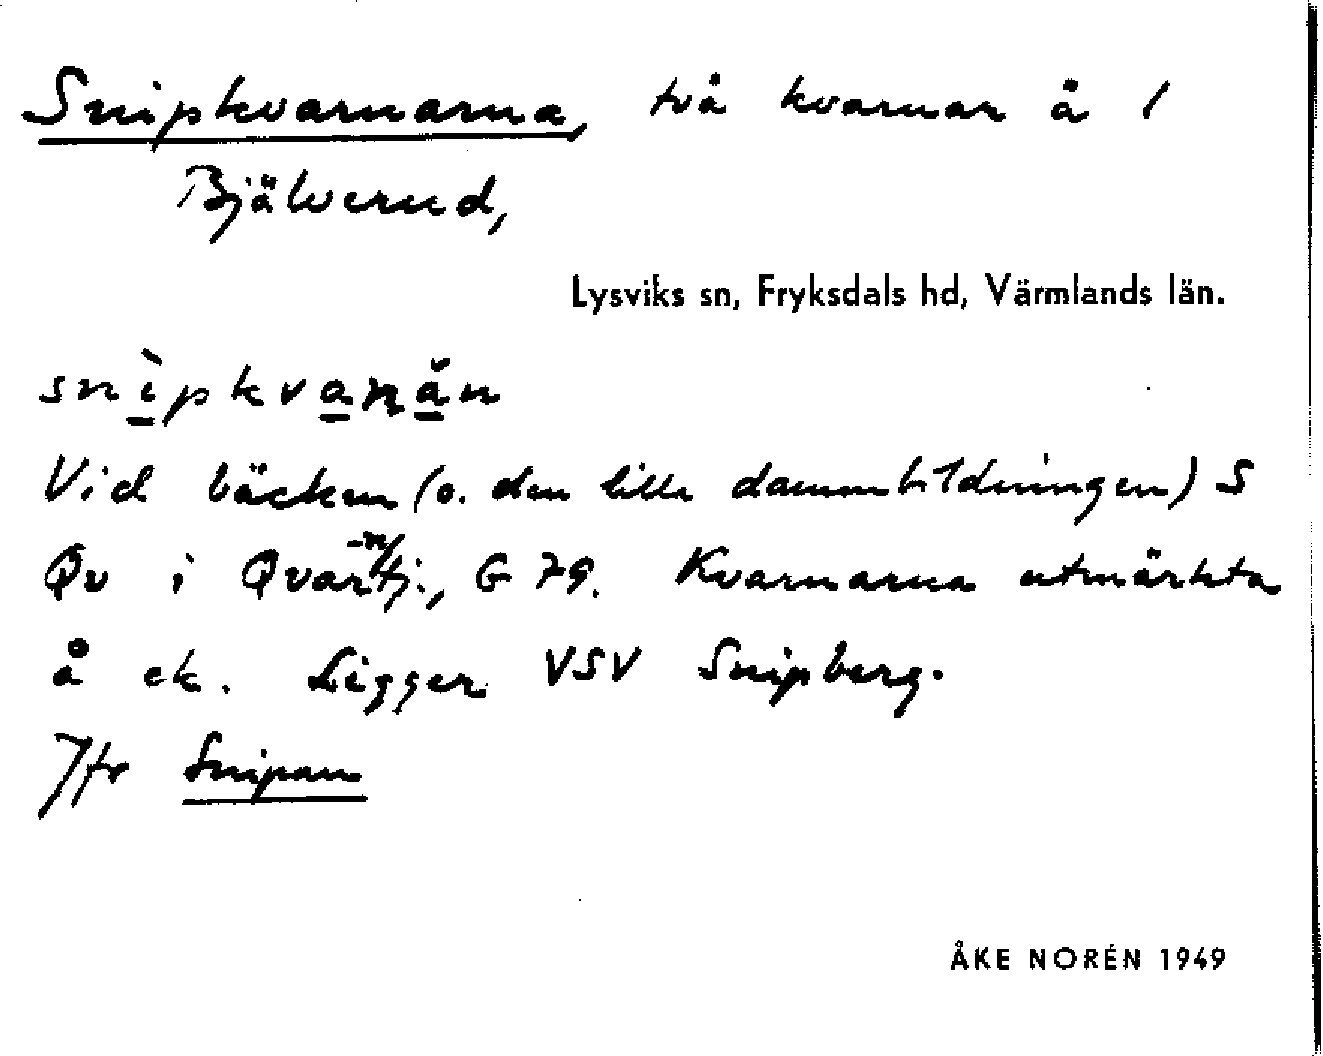 Snipkvarnarna, två kvarnar å 1
Bjälverud,
Lysviks sn, Fryksdals hd, Värmlands län.
snìpkvanăn
Vid bäcken (o. den lilla dammbildningen) S
Qv i Qvarntj., G 79. Kvarnarna utmärkta
å ek. Ligger VSV Snipberg.
Jfr Snipan
ÅKE NORÉN 1949